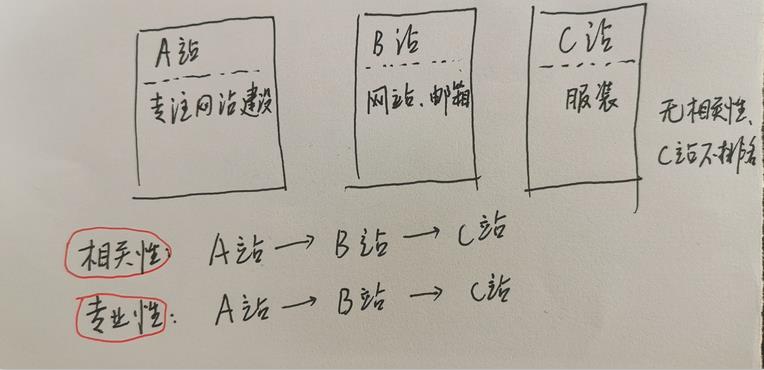 A站
专注网站建设
B站
网站、邮箱
C站
服装
无相关性、
C站不排名
相关性: A站→B站→C站
专业性: A站→B站→C站